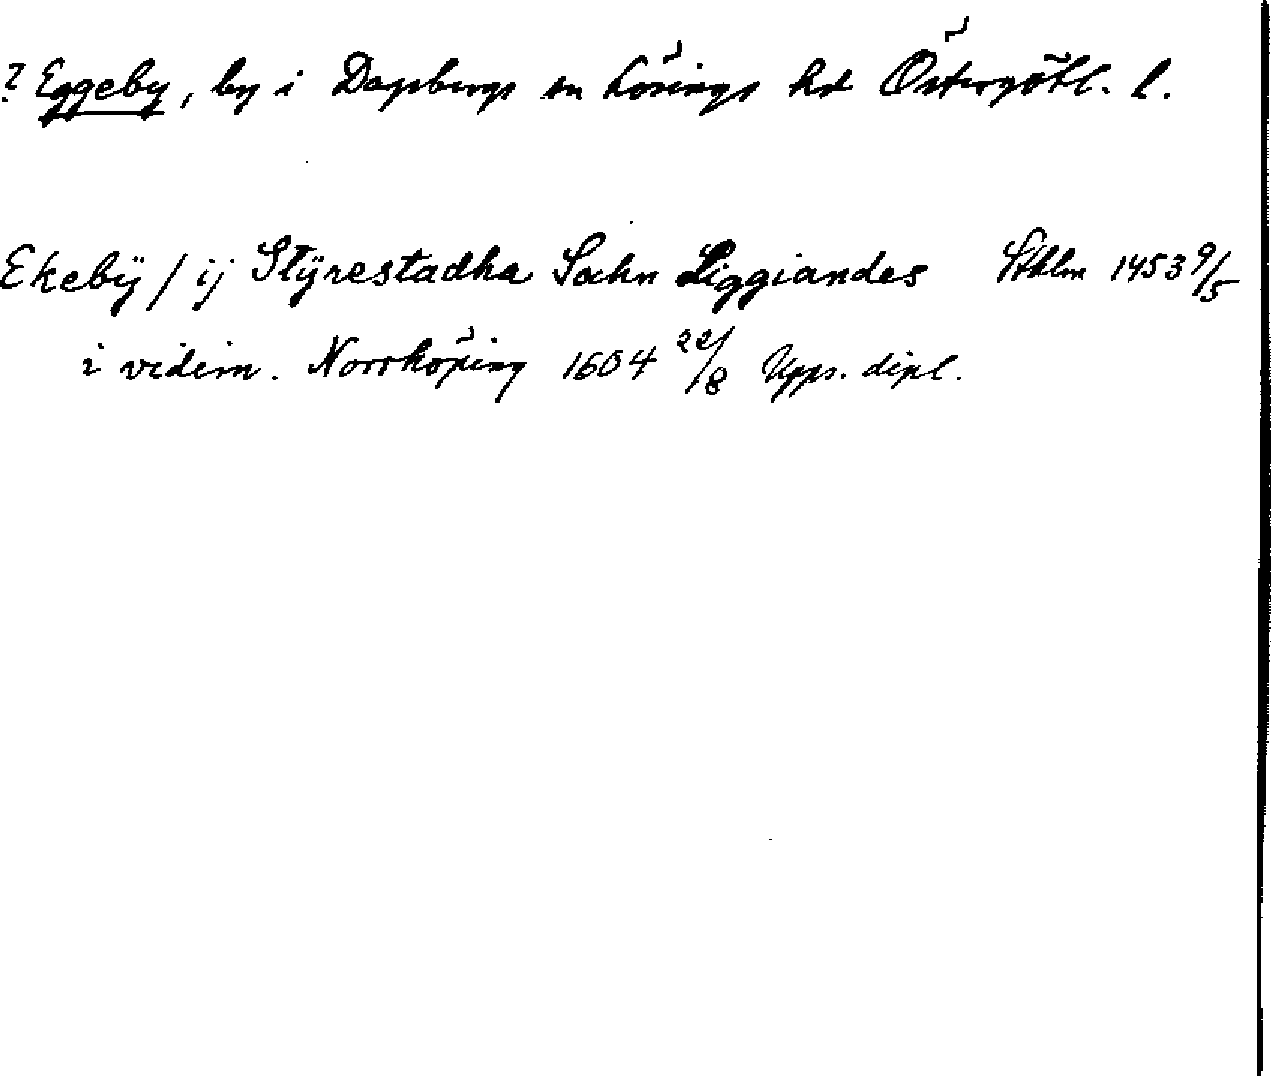 ? Eggeby, by i Dagsbergs sn Lösings hd Östergötl. l.
Ekebÿ / ij Stÿrestadha Sokn Liggiandes Sthlm 1453 9/5
i vidim. Norrköping 1604 22/8 Upps. dipl.